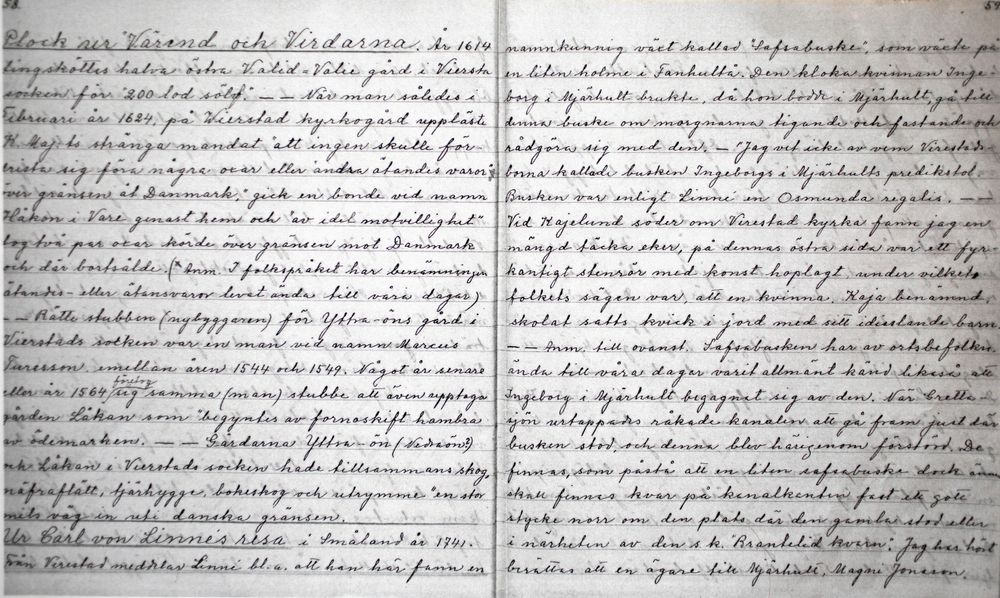 58.
Plock ur "Värend och Virdarna. År 1614
tingsköttis halva östra Valid=Valie gård i Viersta
socken för "200 lod sölf." — — När man således i
Februari år 1624, på Wierstad kyrkogård uppläste
K. Maj:ts stränga mandat "att ingen skulle för-
trista sig föra några oxar eller andra åtandes varor *
över gränsen åt Danmark," gick en bonde vid namn
Håkon i Vare genast hem och "av idel motvillighet"
tog två par oxar körde över gränsen mot Danmark
och där bortsålde. (* Anm. I folkspråket har benämningen
åtandis- eller åtansvaror levat ända till våra dagar)
— — Rätte stubben (nybyggaren) för Yttra-öns gård i
Vierstads socken var en man vid namn Marcus
Turesson, emellan åren 1544 och 1549. Något år senare
eller år 1564 företog sig samma (man) stubbe att även upptaga
gården Låkan som "begyntes av fornaskift hambra
av ödemarken. — — Gårdarna Yttra-ön (Vedraön?)
och Låkan i Vierstads socken hade tillsammans skog,
näfraflått, tjärhygge, bokeskog och utrymme "en stor
mils väg in uti danska gränsen.
Ur Carl von Linnes resa i Småland år 1741.
Från Virestad meddelar Linné bl.a. att han här fann en
59
namnkunnig växt kallad "Safsabuske", som växte på
en liten holme i Fanhultå. Den kloka kvinnan Inge-
borg i Mjärhult brukte, då hon bodde i Mjärhult, gå till
denna buske om morgnarna tigande och fastande och
rådgöra sig med den. — "Jag vet icke av vem Virestads-
borna kallade busken Ingeborgs i Mjärhults predikstol.
Busken var enligt Linné en Osmunda regalis. — —
Vid Kajelund söder om Virestad kyrka fann jag en
mängd täcka eker, på dennas östra sida var ett fyr-
kantigt stenrör med konst hoplagt, under vilket
folkets sägen var, att en kvinna, Kaja benämnd,
skolat satts kvick i jord med sitt idisslande barn
— — Anm. till ovanst. Safsabusken har av ortsbefolkn.
ända till våra dagar varit allmänt känd likaså att
Ingeborg i Mjärhult begagnat sig av den. När Gretta-
sjön urtappades råkade kanalen att gå fram just där
busken stod, och denna blev härigenom förstörd. De
finnas, som påstå att en liten safsabuske dock ännu
skall finnas kvar på kanalkanten fast ett gott
stycke norr om den plats där den gamla stod eller
i närheten av den s.k. "Brantelid kvarn". Jag har hört
berättas att en ägare till Mjärhult, Magni Jonsson,